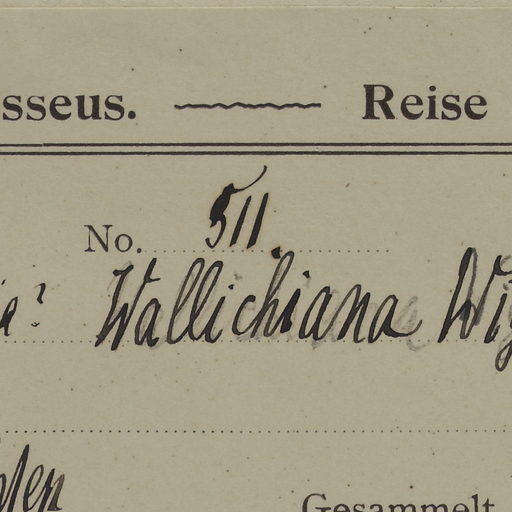 sseus. Reise
No. 511.
? Wallichiana Wi
Gesammelt